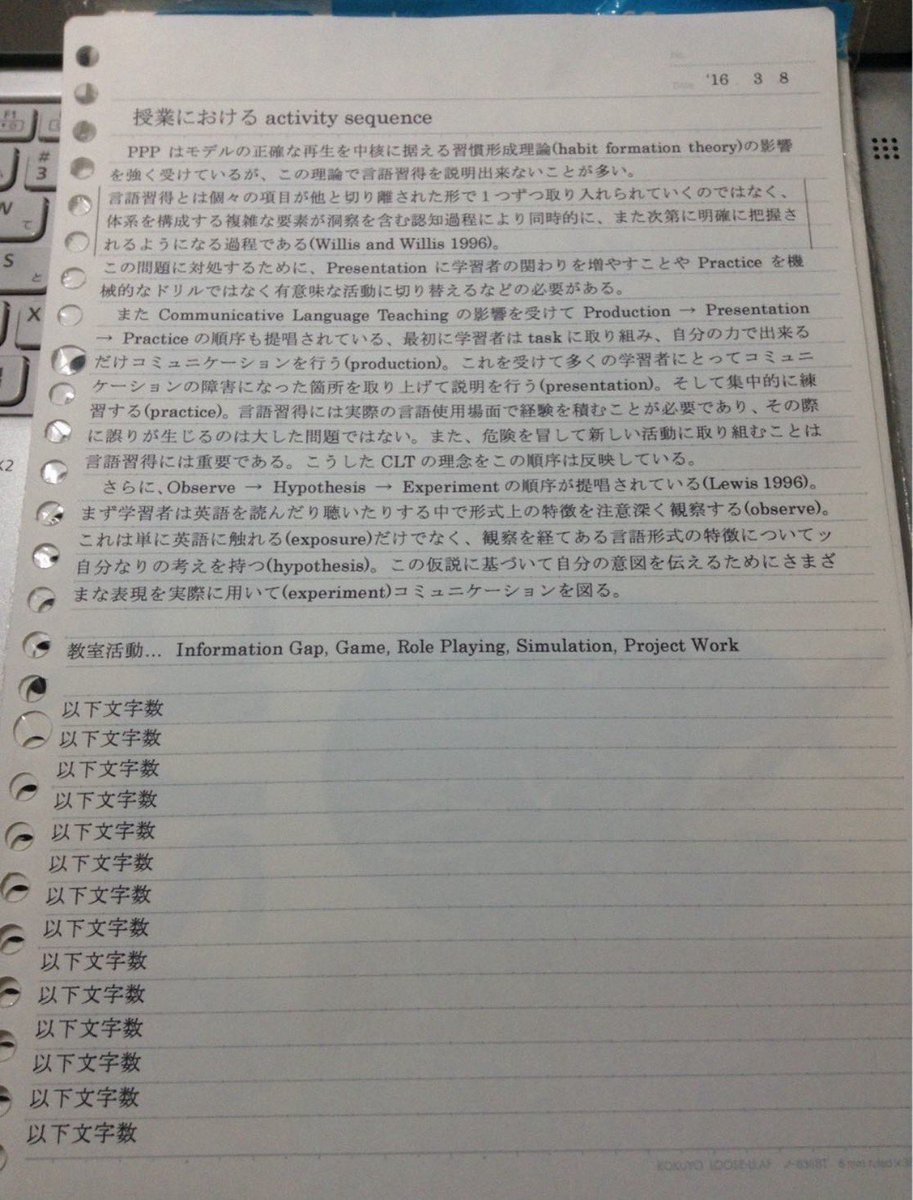 '16 3 8
授業における activity sequence
PPP はモデルの正確な再生を中核に据える習慣形成理論(habit formation theory)の影響
を強く受けているが、この理論で言語習得を説明出来ないことが多い。
言語習得とは個々の項目が他と切り離された形で１つずつ取り入れられていくのではなく、
体系を構成する複雑な要素が洞察を含む認知過程により同時的に、また次第に明確に把握さ
れるようになる過程である(Willis and Willis 1996)。
この問題に対処するために、Presentation に学習者の関わりを増やすことや Practice を機
械的なドリルではなく有意味な活動に切り替えるなどの必要がある。
また Communicative Language Teaching の影響を受けて Production → Presentation
→ Practice の順序も提唱されている、最初に学習者は task に取り組み、自分の力で出来る
だけコミュニケーションを行う(production)。これを受けて多くの学習者にとってコミュニ
ケーションの障害になった箇所を取り上げて説明を行う(presentation)。そして集中的に練
習する(practice)。言語習得には実際の言語使用場面で経験を積むことが必要であり、その際
に誤りが生じるのは大した問題ではない。また、危険を冒して新しい活動に取り組むことは
言語習得には重要である。こうした CLT の理念をこの順序は反映している。
さらに、Observe → Hypothesis → Experiment の順序が提唱されている(Lewis 1996)。
まず学習者は英語を読んだり聴いたりする中で形式上の特徴を注意深く観察する(observe)。
これは単に英語に触れる(exposure)だけでなく、観察を経てある言語形式の特徴についてッ
自分なりの考えを持つ(hypothesis)。この仮説に基づいて自分の意図を伝えるためにさまざ
まな表現を実際に用いて(experiment)コミュニケーションを図る。
教室活動… Information Gap, Game, Role Playing, Simulation, Project Work
以下文字数
以下文字数
以下文字数
以下文字数
以下文字数
以下文字数
以下文字数
以下文字数
以下文字数
以下文字数
以下文字数
以下文字数
以下文字数
以下文字数